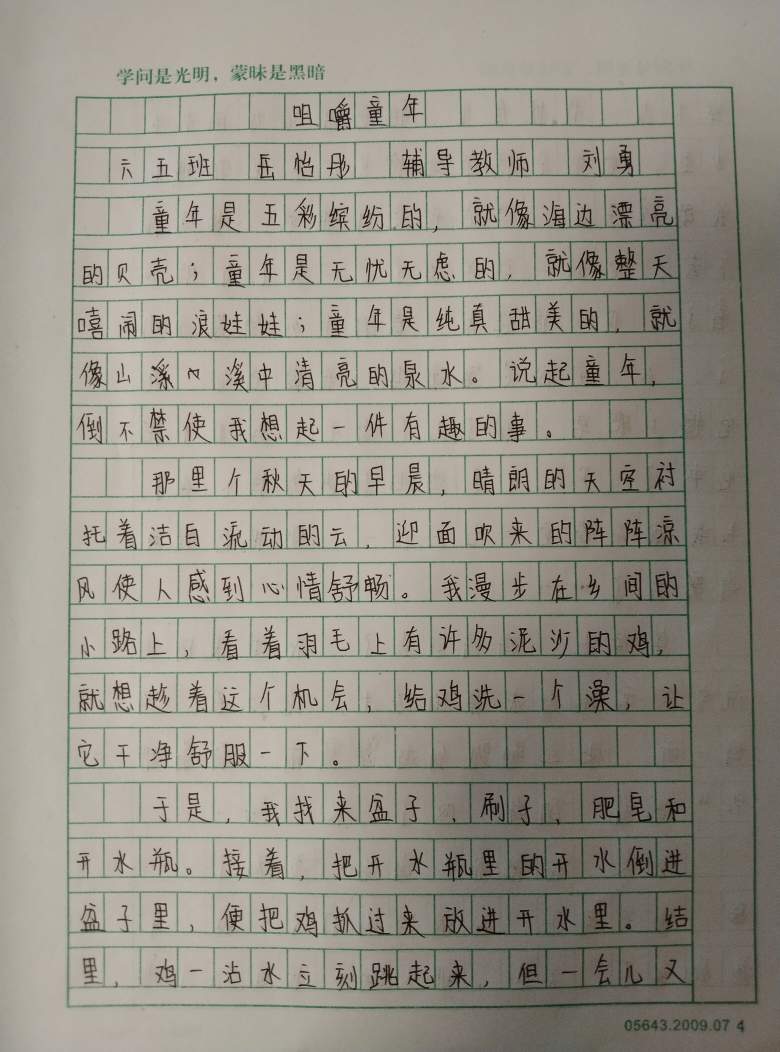 学问是光明，蒙昧是黑暗
咀嚼童年
六五班 岳怡彤 辅导教师 刘勇
童年是五彩缤纷的，就像海边漂亮
的贝壳；童年是无忧无虑的，就像整天
嘻闹的浪娃娃；童年是纯真甜美的，就
像山溪内溪中清亮的泉水。说起童年，
倒不禁使我想起一件有趣的事。
那里个秋天的早晨，晴朗的天空衬
托着洁白流动的云，迎面吹来的阵阵凉
风使人感到心情舒畅。我漫步在乡间的
小路上，看着羽毛上有许多泥沙的鸡，
就想趁着这个机会，给鸡洗一个澡，让
它干净舒服一下。
于是，我找来盆子、刷子、肥皂和
开水瓶。接着，把开水瓶里的开水倒进
盆子里，便把鸡抓过来放进开水里。结
里，鸡一沾水立刻跳起来，但一会儿又
05643.2009.07 4